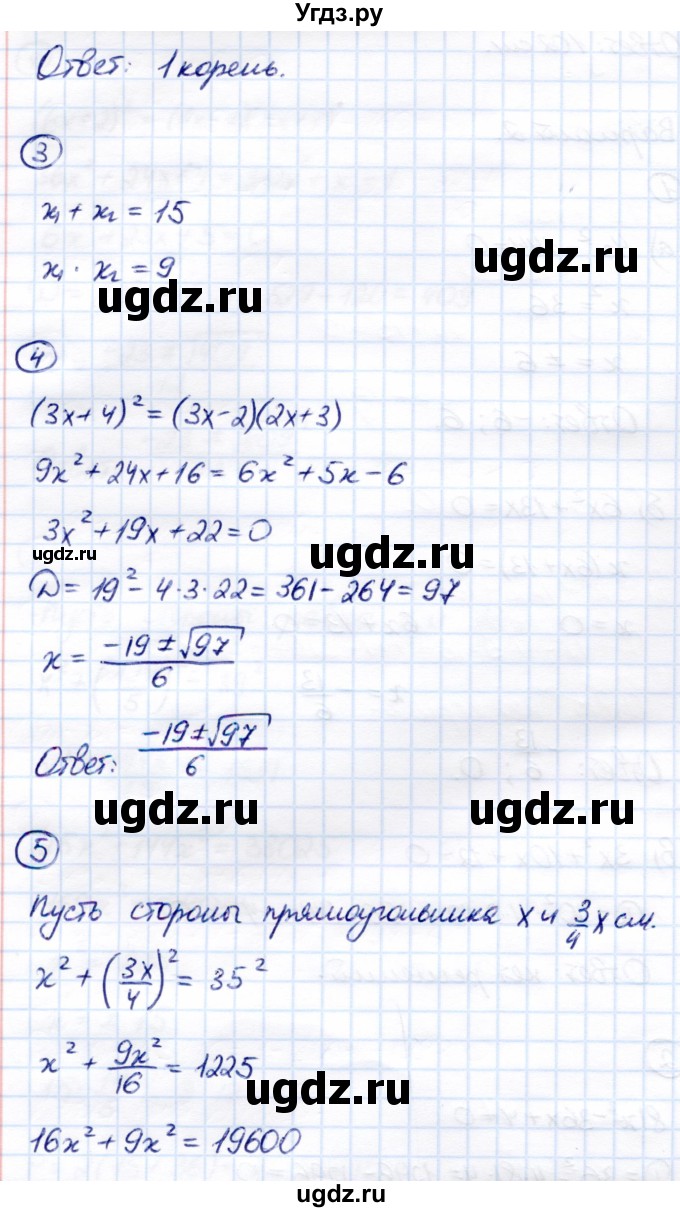 Угдз.ру
Ответ: 1 корень.
3
x₁ + x₂ = 15
x₁ · x₂ = 9
ugdz.ru
ugdz.ru
4
(3x+4)² = (3x-2)(2x+3)
9x² + 24x + 16 = 6x² + 5x - 6
3x² + 19x + 22 = 0
ugdz.ru
ugdz.ru
D = 19² - 4·3·22 = 361 - 264 = 97
x = (-19 ± √97)/6
Ответ: (-19 ± √97)/6
ugdz.ru
ugdz.ru
5
Пусть стороны прямоугольника x и 3/4 x см.
x² + (3x/4)² = 35²
x² + 9x²/16 = 1225
ugdz.ru
16x² + 9x² = 19600
ugdz.ru